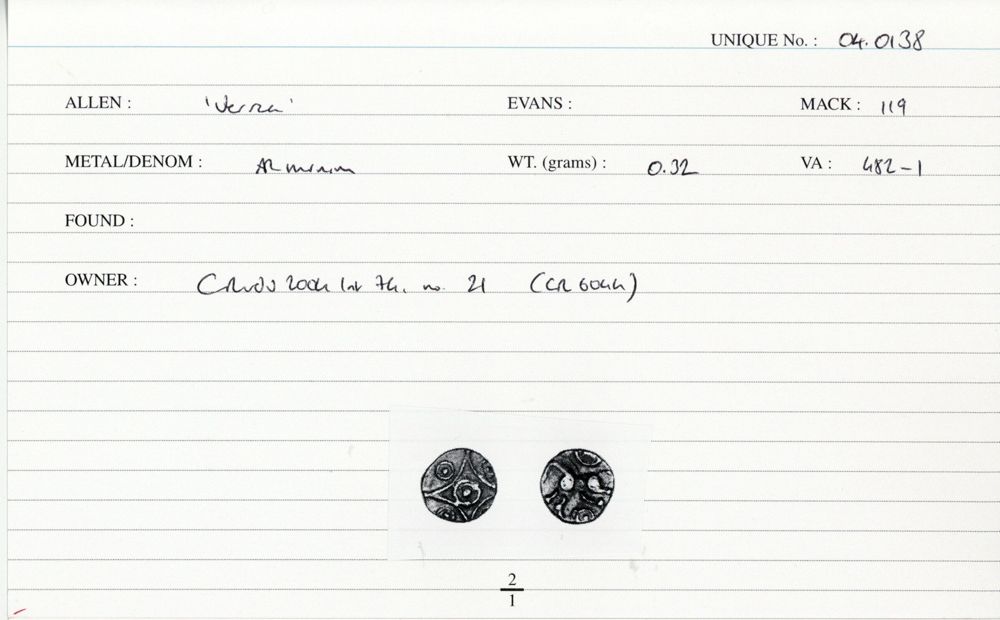 UNIQUE No. : 04.0138
ALLEN : 'Verica' EVANS : MACK : 119
METAL/DENOM : AR minim WT. (grams) : 0.32 VA : 482-1
FOUND :
OWNER : 2004 list 74. no. 21 (CR 6044)
2
1